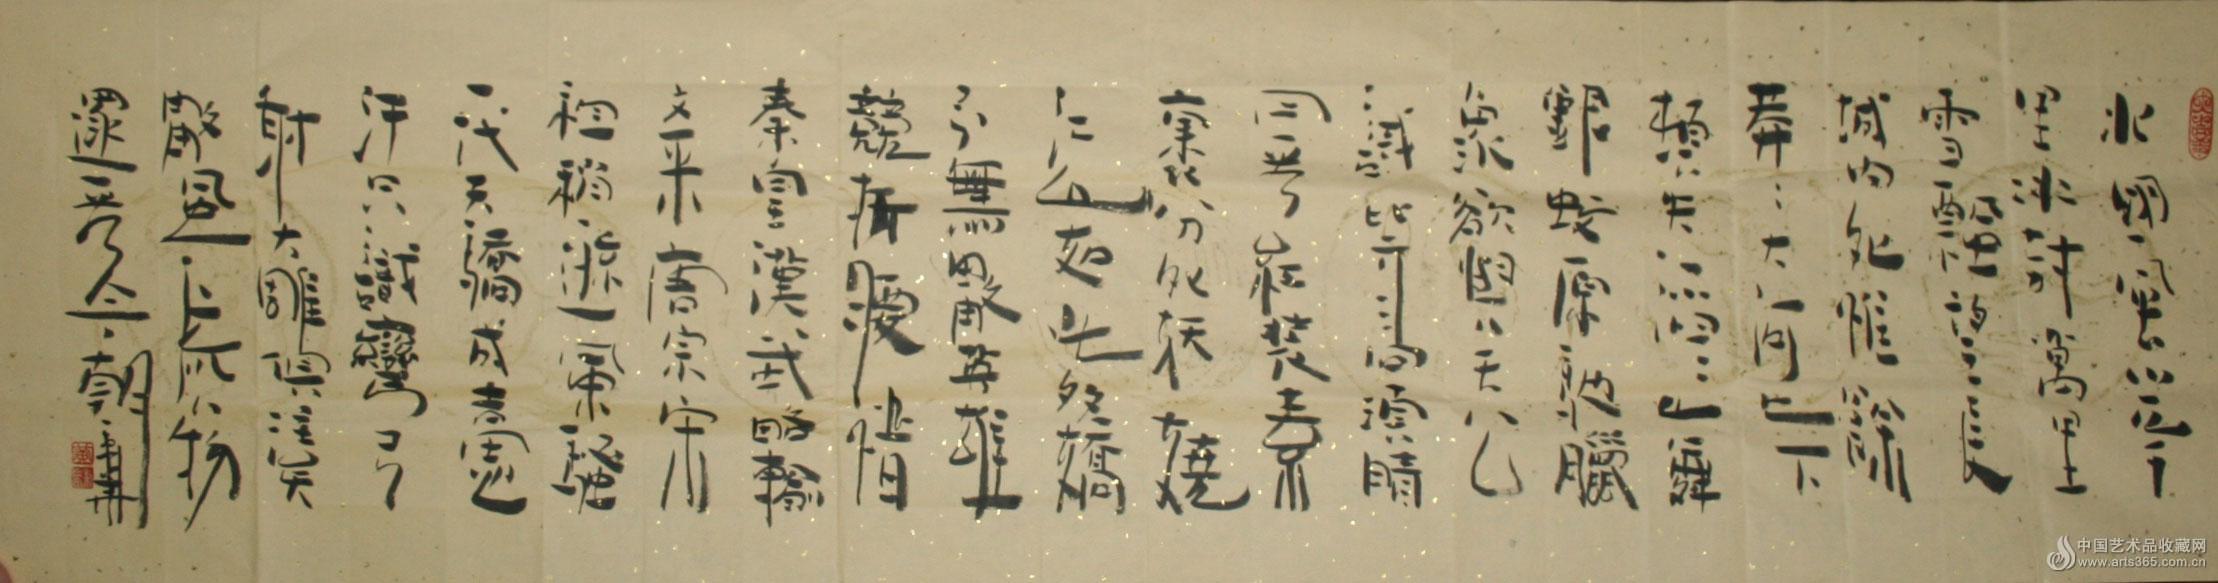 北國風光千
里冰封萬里
雪飄望長
城内外惟餘
莽々大河上下
頓失滔々山舞
銀蛇原馳臘
象欲與天公
試比高須晴
日看紅裝素
裹分外妖嬈
江山如此多嬌
引無數英雄
競折腰惜
秦皇漢武略輸
文采唐宗宋
祖稍遜風騷
一代天驕成吉思
汗只識彎弓
射大雕俱往矣
數風流人物
還看今朝
中国艺术品收藏网
www.arts365.com.cn